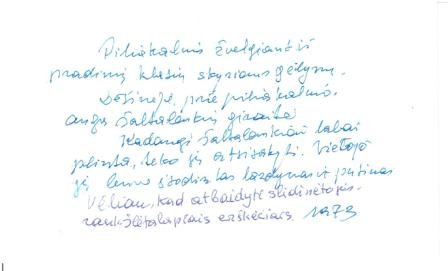 Piliakalnis žvelgiant iš
pradinių klasių skyriaus gėlyno.
Dešinėje, prie piliakalnio.
auga šaltalankių giraitė
Kadangi šaltalankiai labai
plinta, teko jų atsisakyti. Vietoje
jų buvo įsodintas lazdynas ir putinas
Vėliau, kad atbaidytų slidinėtojus.
raukšlėtalapiais erškėčiais. 1979